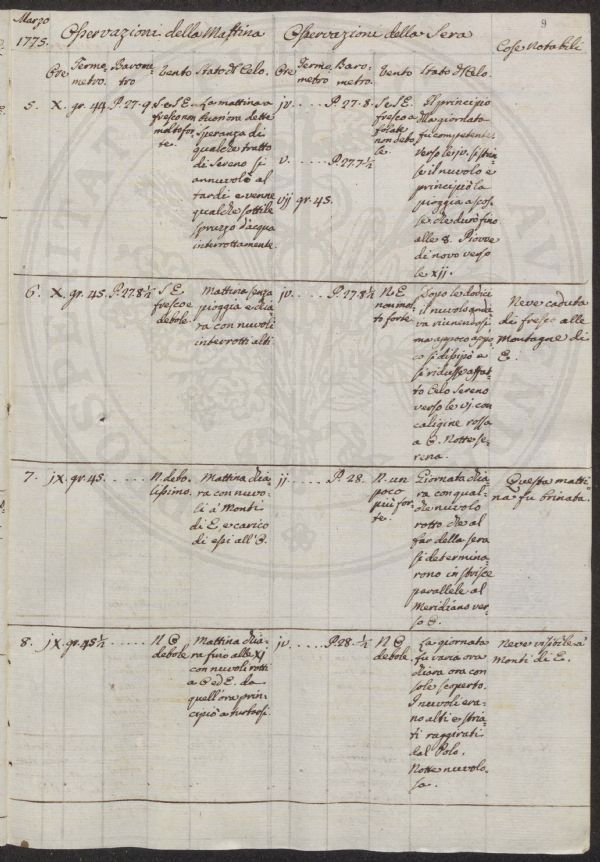 Marzo
1775.
Osservazioni della Mattina
Osservazioni della Sera
9
Cose Notabili
Ore Termo metro. Barome tro Vento Stato d'Celo.
Ore Termo metro Baro metro. Vento Stato d'Celo.
5. X. gr. 44. P. 27. 9. S e S E.
fresco non
molto for
te.
La mattina a
buon'ora dette
speranza di
qualche tratto
di Sereno si
annuvolò al
tardi e venne
qualche sottile
spruzzo d'acqua
interrottamente.
jv. . . . . P. 27. 8.
v. . . . . . P. 27. 7½
vij gr. 45.
S e S E.
fresco a
folate
non debo
le
Il principio
della giornata
fu competente
verso le jv. si strin
se il nuvolo e
principiò la
pioggia a scos
se che durò fino
alle 8. Piovve
di novo verso
le xij.
6. X. gr. 45. P. 27. 8½
S E
fresco e
debole.
Mattina senza
pioggia e chia
ra con nuvoli
interrotti alti
jv. . . . . P. 27. 8½
N E
non mol
to forte
Dopo le dodici
il nuvolo anda
va riunendosi
ma appoco appo
co si dissipò e
si ridusse affat
to Celo sereno
verso le vj. con
caligine rossa
a O. Notte se
rena.
Neve caduta
di fresco alle
Montagne di
E.
7. jx. gr. 45. . . . . . .
N. debo
lissimo.
Mattina chia
ra con nuvo
li à Monti
di E, e carico
di essi all'O.
ij. . . . . P. 28.
N. un
poco
più for
te.
Giornata chia
ra con qual
che nuvolo
rotto che al
far della sera
si determina
rono in strisce
parallele al
Meridiano ver
so O.
Questa matti
na fu brinata.
8. jx. gr. 45½ . . . . . .
N O
debole
Mattina chia
ra fino alle XI
con nuvoli rotti
a O ed E. da
quell'ora prin
cipiò a turbarsi.
jv. . . . . P. 28. ½
N O
debole
La giornata
fu varia ora
chiara ora con
sole scoperto.
I nuvoli era
no alti e stria
ti raggirati
dal Polo.
Notte nuvolo
sa.
Neve visibile a
Monti di E.